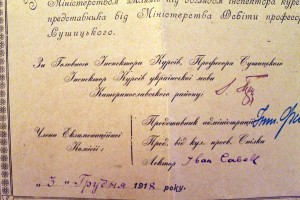 представника від Міністерства Освіти професо
Сушицького.
За Головного Інспектора Курсів, Професора Сушицького
Інспектор Курсів української мови
Катеринославського району:
Представник адміністрації
Члени Екзаменаційної
Комісії:
Пред. від кул. просв. Спілки
Лектор Іван
"3" Грудня 1918 року.